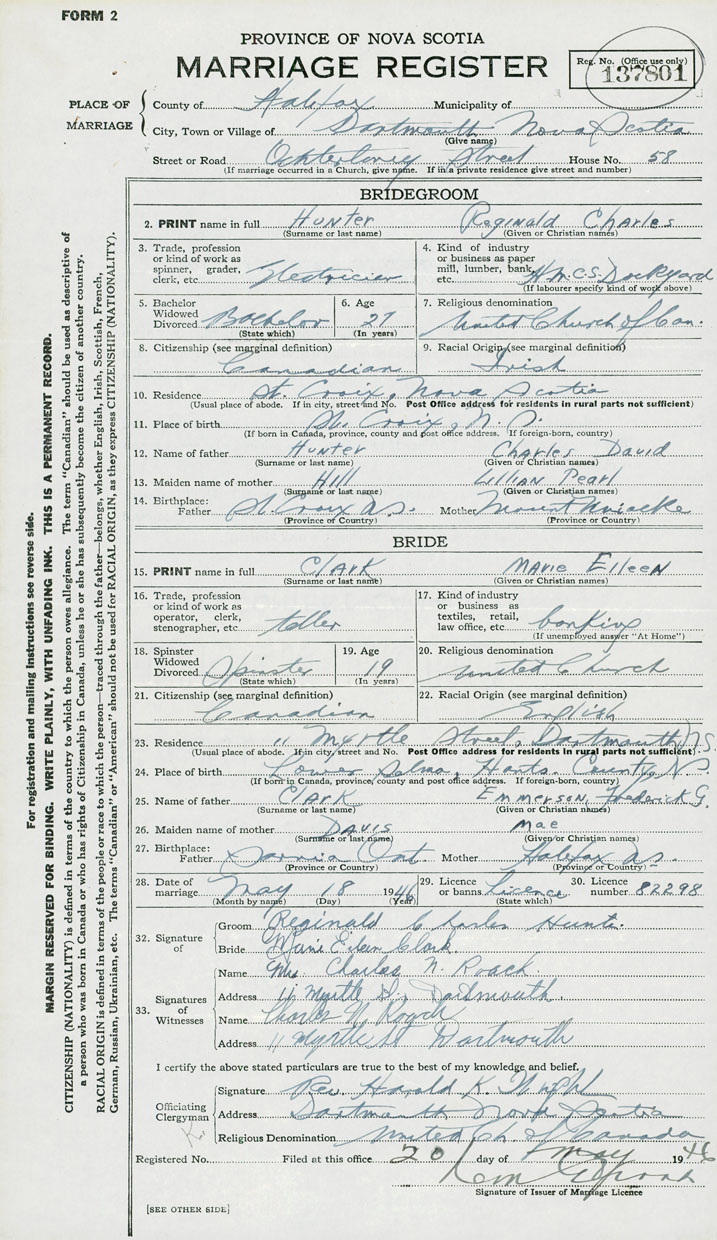 FORM 2
PROVINCE OF NOVA SCOTIA
MARRIAGE REGISTER
Reg. No. (Office use only)
137801
PLACE OF MARRIAGE
County of Halifax Municipality of
City, Town or Village of Dartmouth Nova Scotia
(Give name)
Street or Road Ochterloney Street House No. 58
(If marriage occurred in a Church, give name. If in a private residence give street and number)
BRIDEGROOM
2. PRINT name in full Hunter Reginald Charles
(Surname or last name) (Given or Christian names)
3. Trade, profession or kind of work as spinner, grader, clerk, etc. Electrician
4. Kind of industry or business as paper mill, lumber, bank, etc. H.M.C.S. Dockyard
(If labourer specify kind of work above)
5. Bachelor Widowed Divorced Bachelor
(State which)
6. Age 27
(In years)
7. Religious denomination
United Church of Can.
8. Citizenship (see marginal definition)
Canadian
9. Racial Origin (see marginal definition)
Irish
10. Residence St. Croix, Nova Scotia
(Usual place of abode. If in city, street and No. Post Office address for residents in rural parts not sufficient)
11. Place of birth St. Croix, N.S.
(If born in Canada, province, county and post office address. If foreign-born, country)
12. Name of father Hunter Charles David
(Surname or last name) (Given or Christian names)
13. Maiden name of mother Hill Lillian Pearl
(Surname or last name) (Given or Christian names)
14. Birthplace: Father St. Croix N.S. Mother Mount Uniacke
(Province or Country) (Province or Country)
BRIDE
15. PRINT name in full Clark Marie Eileen
(Surname or last name) (Given or Christian names)
16. Trade, profession or kind of work as operator, clerk, stenographer, etc teller
17. Kind of industry or business as textiles, retail, law office, etc banking
(If unemployed answer "At Home")
18. Spinster Widowed Divorced Spinster
(State which)
19. Age 19
(In years)
20. Religious denomination
United Church
21. Citizenship (see marginal definition)
Canadian
22. Racial Origin (see marginal definition)
English
23. Residence 11 Myrtle Street, Dartmouth, N.S.
(Usual place of abode. If in city, street and No. Post Office address for residents in rural parts not sufficient)
24. Place of birth Lower Selma, Hants County, N.S.
(If born in Canada, province, county and post office address. If foreign-born, country)
25. Name of father Clark Emmerson, Frederick G.
(Surname or last name) (Given or Christian names)
26. Maiden name of mother Davis Mae
(Surname or last name) (Given or Christian names)
27. Birthplace: Father Sarnia Ont. Mother Halifax N.S.
(Province or Country) (Province or Country)
28. Date of marriage May 18 1946
(Month by name) (Day) (Year)
29. Licence or banns Licence
(State which)
30. Licence number 82298
32. Signature of
Groom Reginald Charles Hunter
Bride Marie Eileen Clark
33. Signatures of Witnesses
Name Mrs. Charles N. Roach
Address 11 Myrtle St., Dartmouth
Name Charles N Roach
Address 11 Myrtle St Dartmouth
I certify the above stated particulars are true to the best of my knowledge and belief.
Officiating Clergyman
Signature Rev. Harold K.
Address Dartmouth Nova Scotia
Religious Denomination United Ch. of Canada
Registered No. Filed at this office 20 day of May 1946
Signature of Issuer of Marriage Licence
[SEE OTHER SIDE]
For registration and mailing instructions see reverse side.
MARGIN RESERVED FOR BINDING. WRITE PLAINLY, WITH UNFADING INK. THIS IS A PERMANENT RECORD.
CITIZENSHIP (NATIONALITY) is defined in terms of the country to which the person owes allegiance. The term "Canadian" should be used as descriptive of
a person who was born in Canada or who has rights of Citizenship in Canada, unless he or she has subsequently become the citizen of another country.
RACIAL ORIGIN is defined in terms of the people or race to which the person—traced through the father—belongs, whether English, Irish, Scottish, French,
German, Russian, Ukrainian, etc. The terms "Canadian" or "American" should not be used for RACIAL ORIGIN, as they express CITIZENSHIP (NATIONALITY).